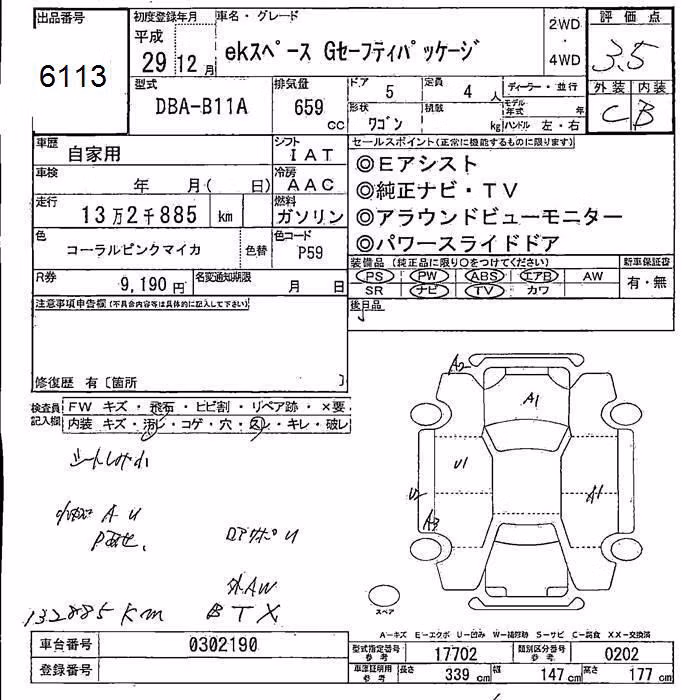 出品番号
6113
初度登録年月
平成
29 12 月
車名・グレード
ekスペース Gセーフティパッケージ
2WD
・
4WD
評価点
3.5
外装 内装
C B
型式
DBA-B11A
排気量
659
cc
ドア
5
定員
4 人
形状
ワゴン
積載
kg
ディーラー・並行
モデル年式 年
ハンドル 左・右
車歴
自家用
シフト
IAT
車検
年 月( 日)
冷房
AAC
走行
13万2千885 km
燃料
ガソリン
色
コーラルピンクマイカ
色替
色コード
P59
R券
9,190 円
名変通知期限
月 日
セールスポイント(正常に機能するものに限ります)
◎Eアシスト
◎純正ナビ・TV
◎アラウンドビューモニター
◎パワースライドドア
装備品 (純正品に限り○をつけてください)
PS PW ABS エアB AW
SR ナビ TV カワ
新車保証書
有・無
後日品
注意事項申告欄(不具合内容等は具体的に記入して下さい)
修復歴 有〔箇所 〕
検査員記入欄
FW キズ・飛石・ヒビ割・リペア跡・×要
内装 キズ・汚レ・コゲ・穴・スレ・キレ・破レ
A U
外AW
132885 Km
B T X
A2
A1
U1
U2
A1
A3
スペア
A-キズ E-エクボ U-凹み W-補修跡 S-サビ C-腐食 XX-交換済
車台番号
0302190
登録番号
型式指定番号 参考
17702
類別区分番号 参考
0202
車庫証明用 参考
長さ 339 cm
幅 147 cm
高さ 177 cm